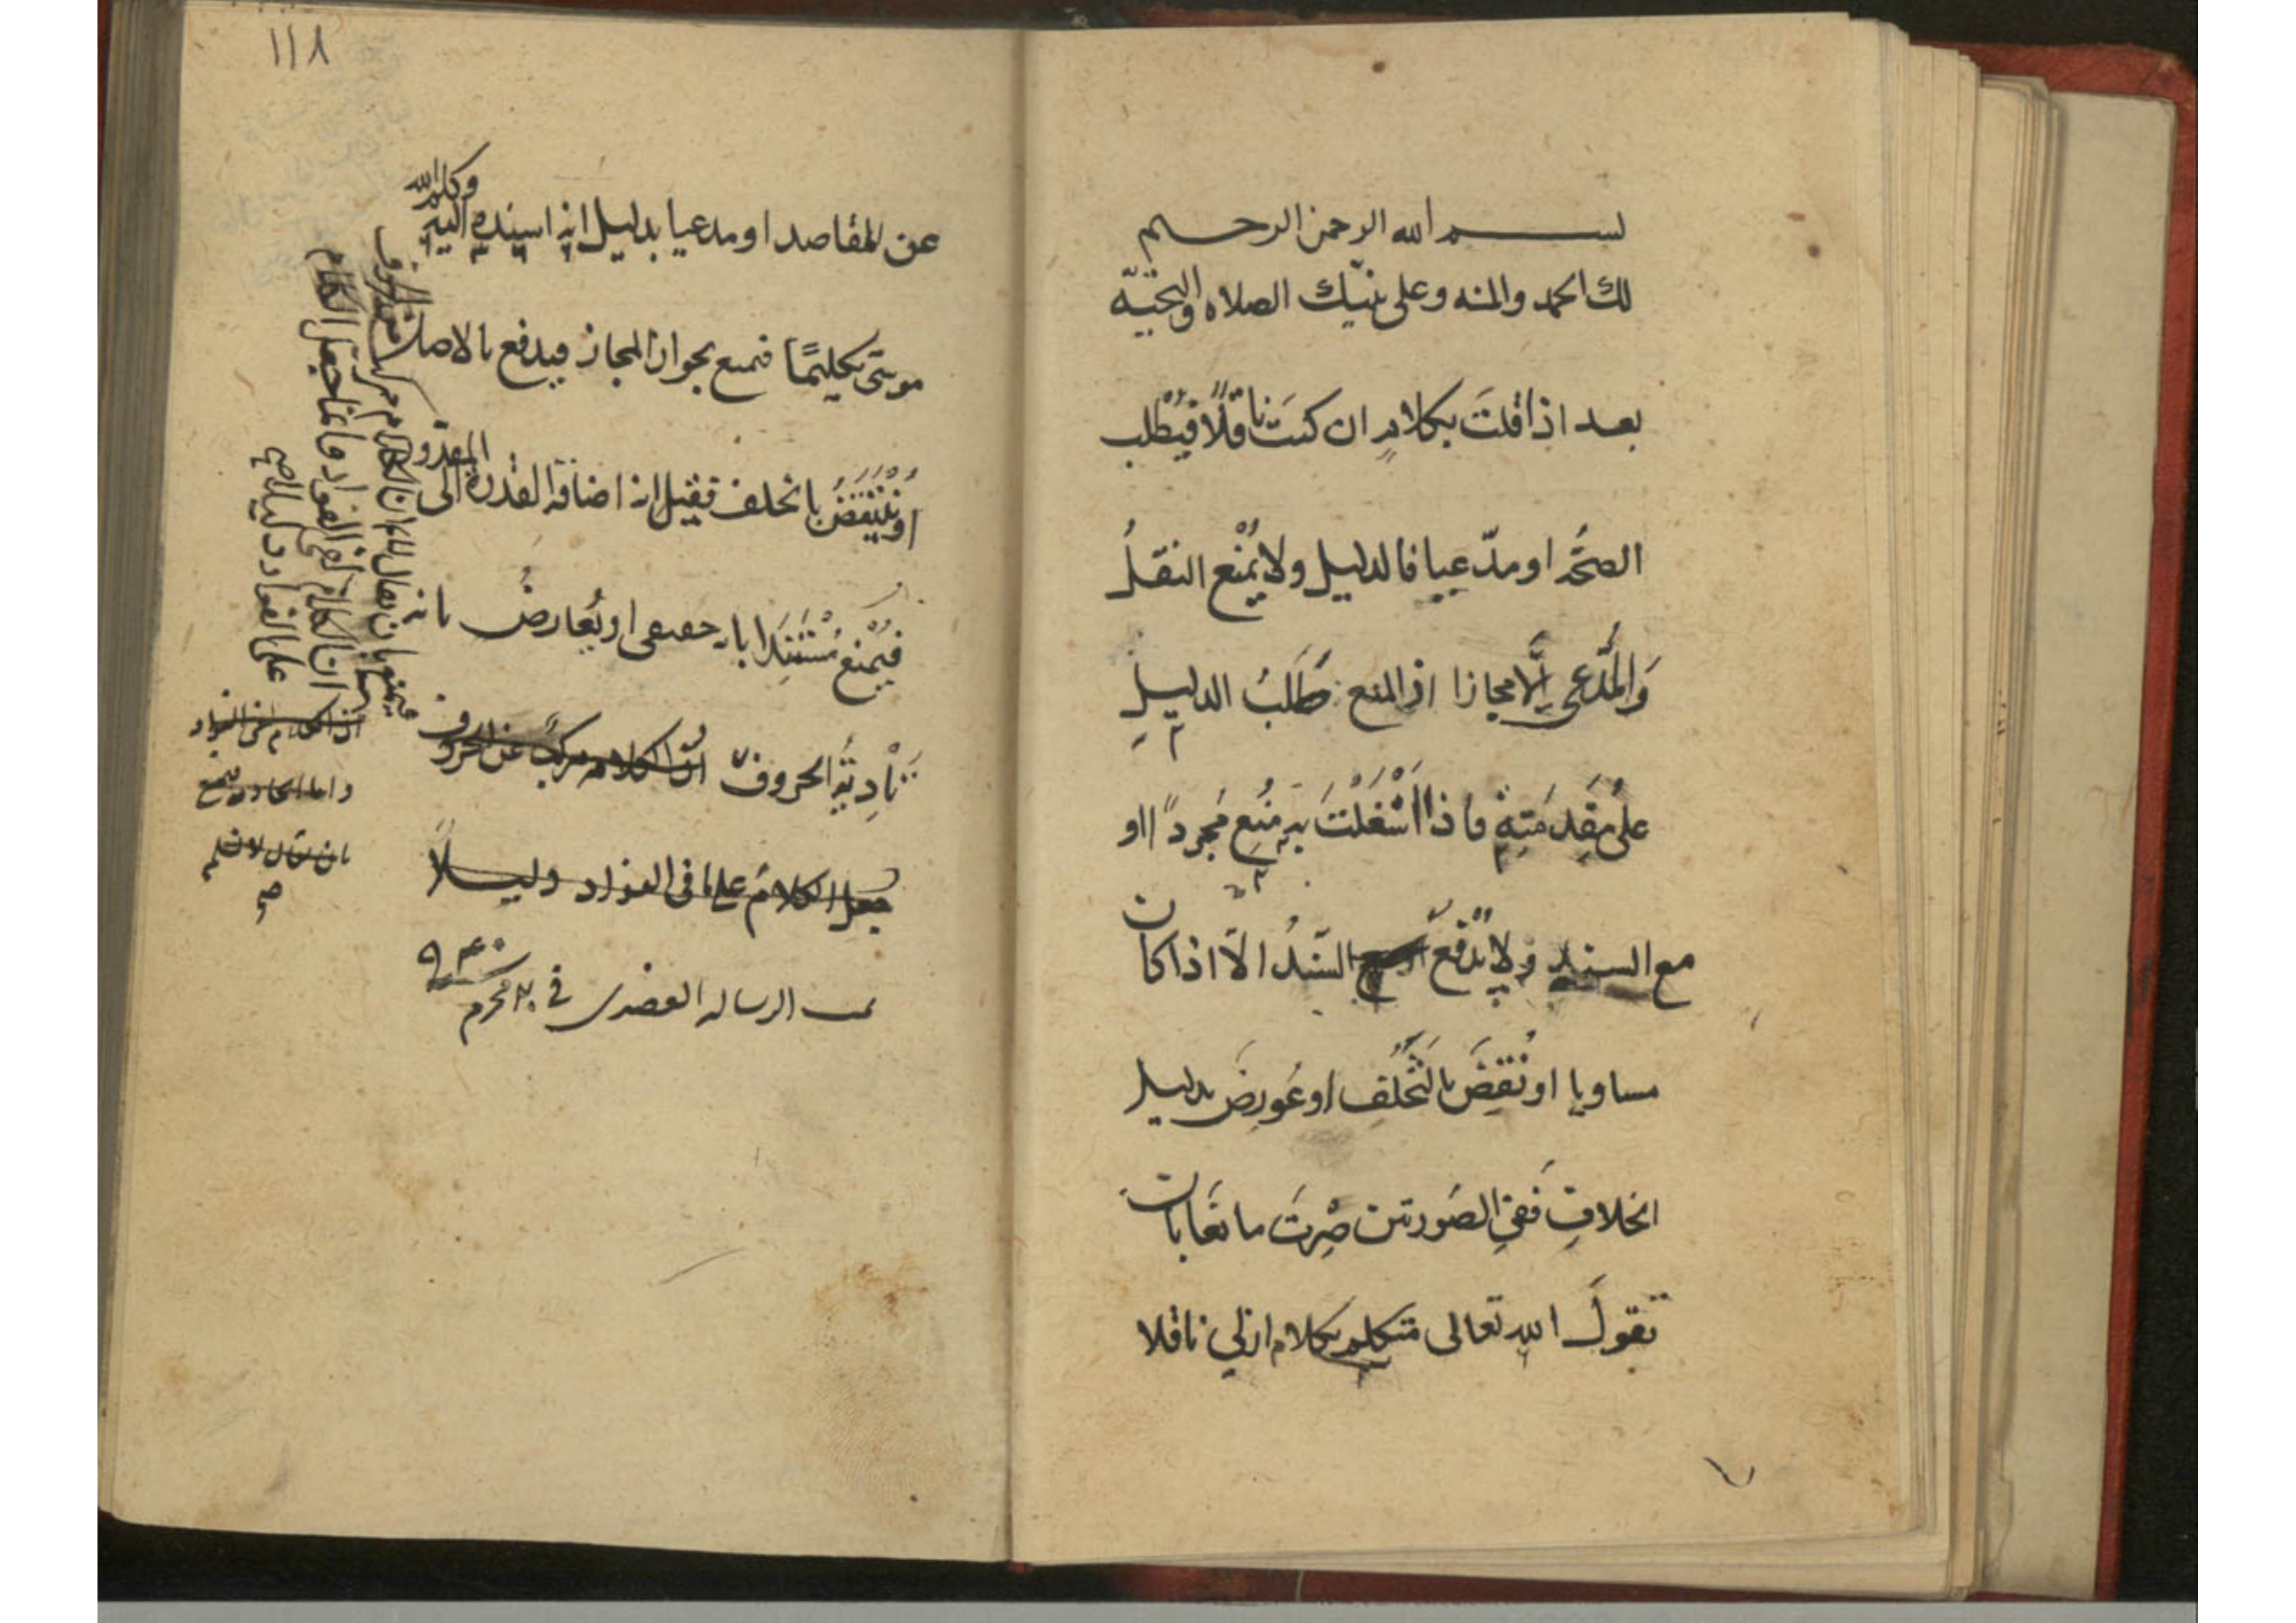 بسم الله الرحمن الرحيم
لك الحمد والمنه وعلى نبيّك الصلاه والتحيّه
بعد اذا قلتَ بكلامٍ ان كنتَ ناقلًا فيُطْلب
الصحّة او مدّعيا فالدليل ولا يُمْنع النقلُ
وَالمدَّعى اِلَّا مجازا اذ المنع طَلَبُ الدليلِ
على مقدمَتِهِ فاذا اشْتَغَلْتَ بِهِ مُنِع مجردًا او
مع السند ولا يُدْفع السّندُ الّا اذا كان
مساويا او نُقِضَ بالتَّخَلُّفِ او عُورِضَ بدليل
الخلافِ فَفي الصورتين صِرْتَ مانعا بان
تقولَ الله تعالى متكلم بكلام ازلي ناقلا
١١٨
عن المقاصد او مدعيا بدليل انه اسنده اليه وكلم الله
موسى تكليمًا فتمنع بجواز المجاز فيدفع بالاصل
او يُنْتَقَضُ بالخلف فقيل انه اضافة القدرة الى المقدور
فيُمْنع مُسْتَنِدًا بانه حقيقى او يُعارضُ بانه
تَأْدِيَةُ الحروف انّ الكلام مركبٌ عن الحروف
جعل الكلامُ على ما فى الفواد دليلًا
تمت الرساله العضدى فى ٢٠ محرم ٩٣٠
فيمنع بان يقال لانم ان الكلام مركب من الحروف
ان الكلام لفى الفواد وانما جعل الكلام
على الفواد دليلا صح
ان الكلام لفى الفواد
بان يقال لا نسلم
صح